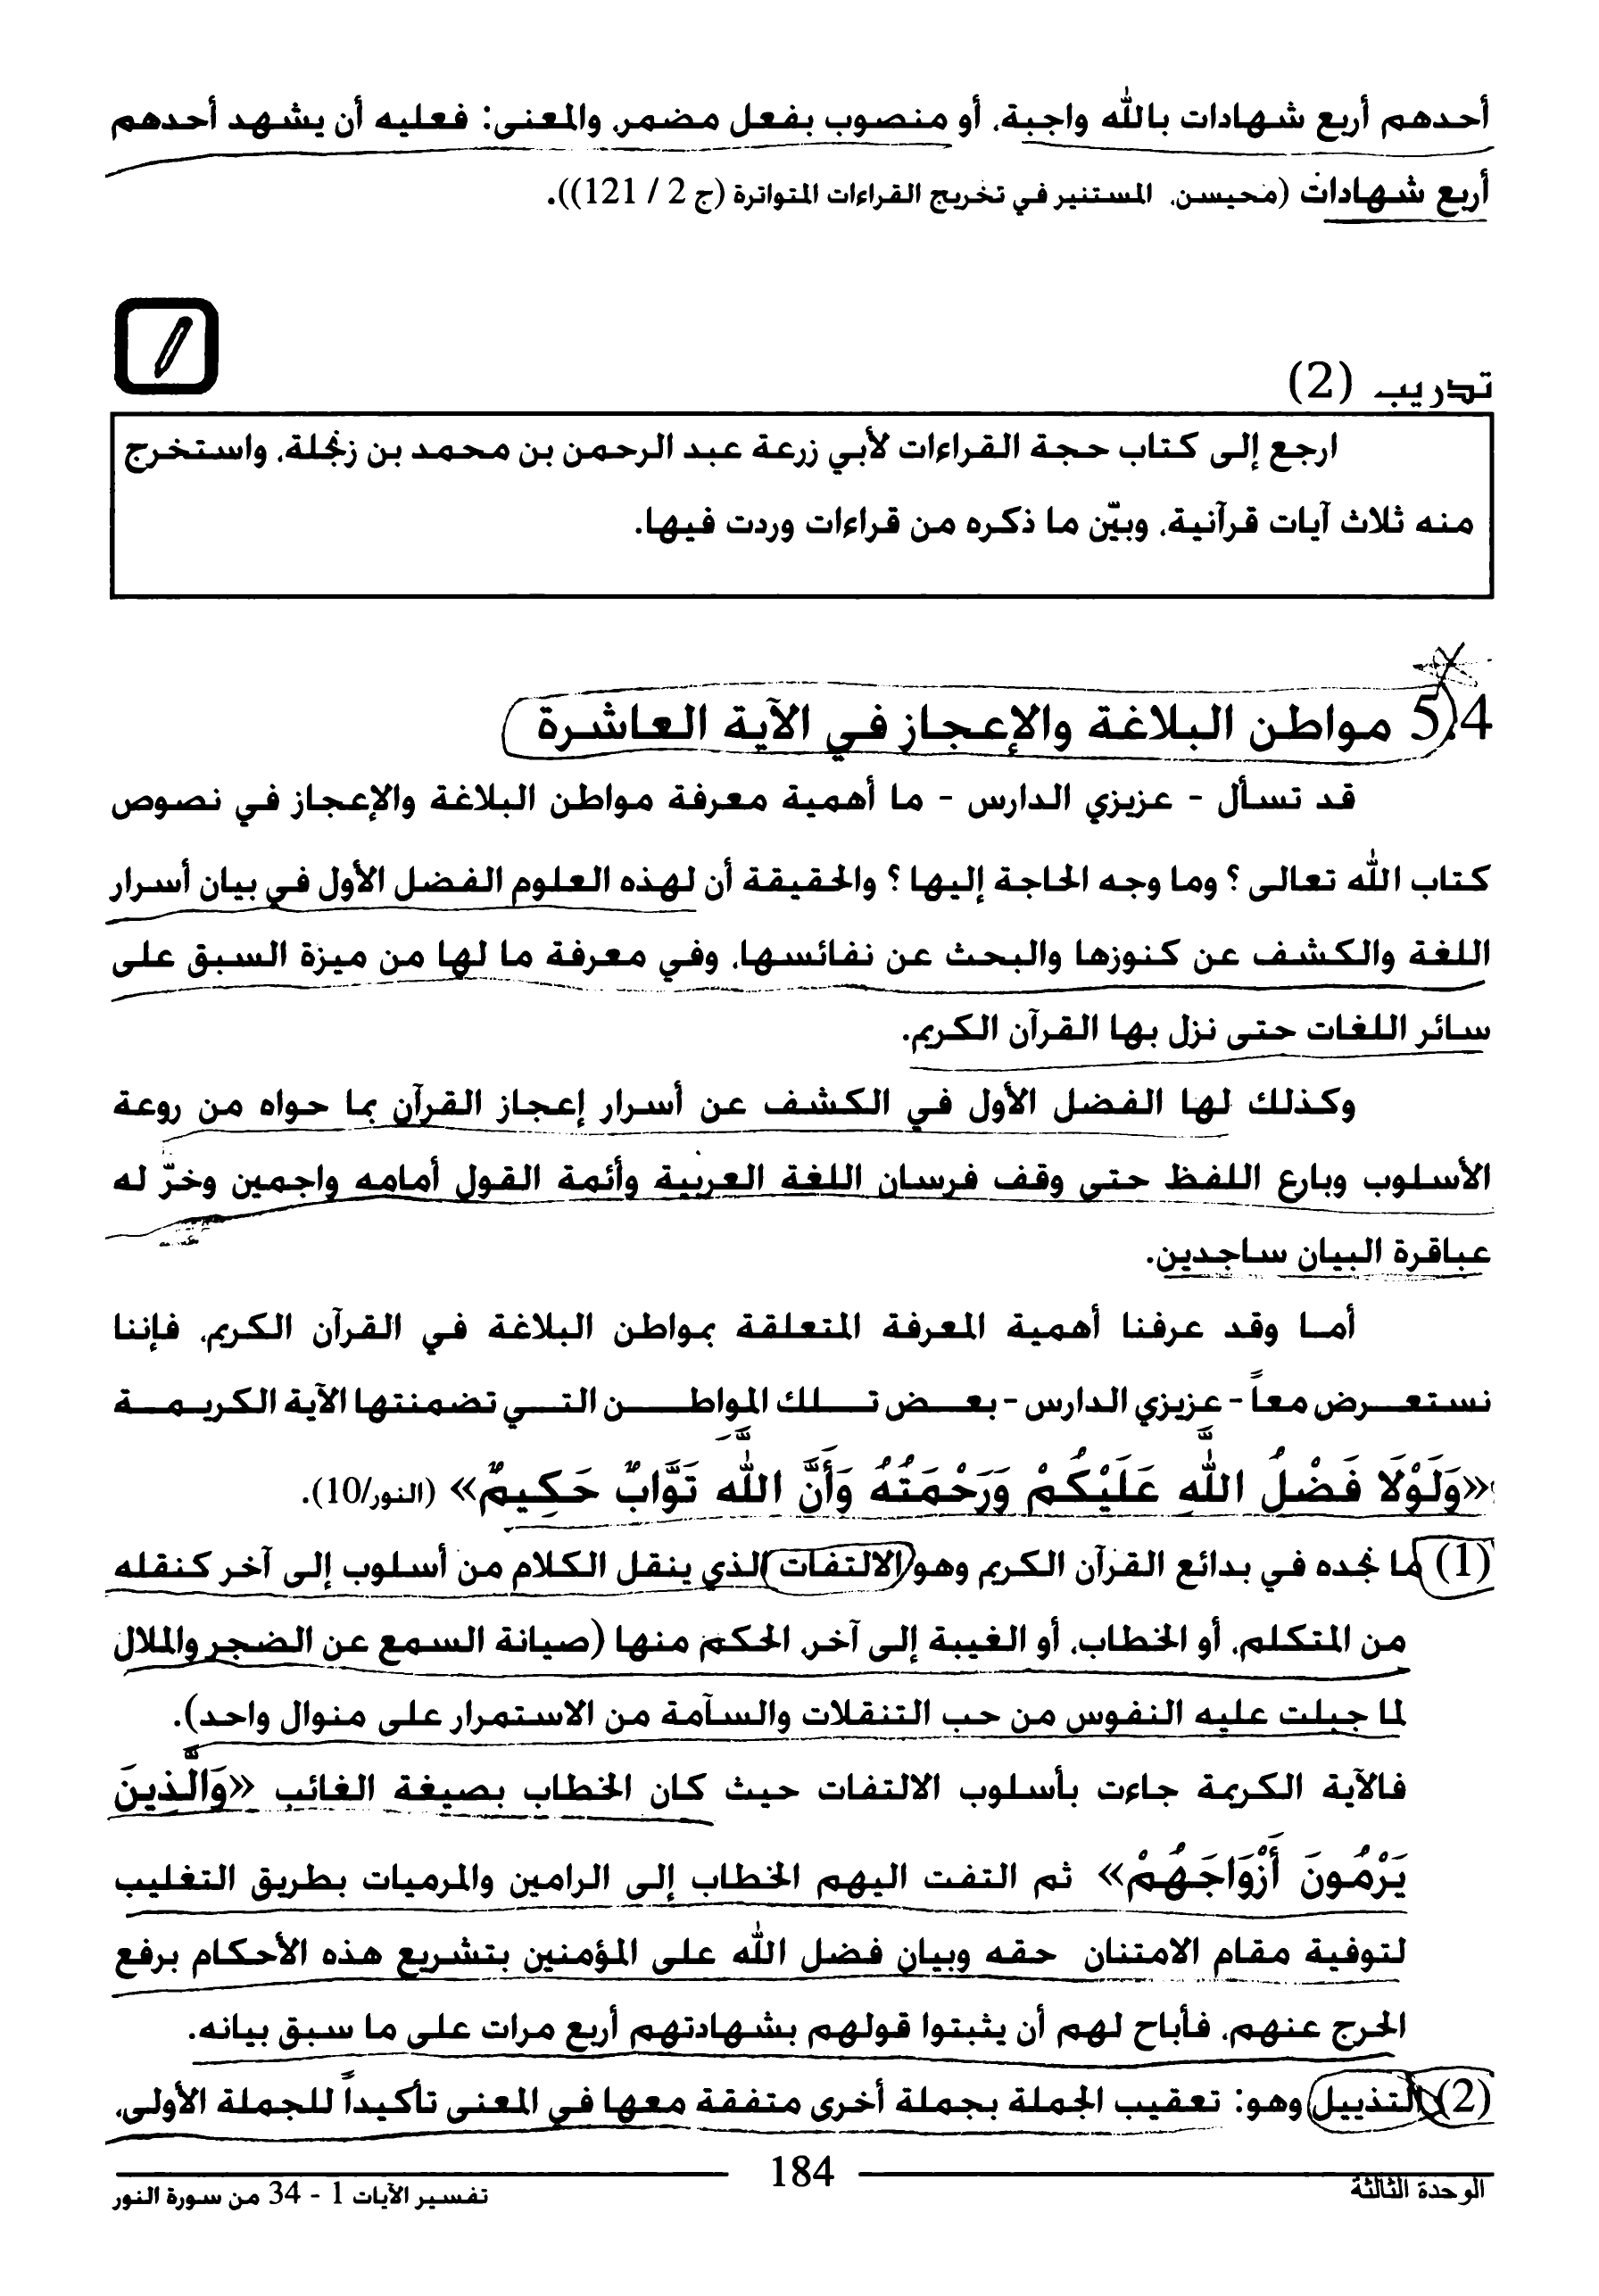 أحدهم أربع شهادات بالله واجبة، أو منصوب بفعل مضمر، والمعنى: فعليه أن يشهد أحدهم
أربع شهادات (محيسن، المستنير في تخريج القراءات المتواترة (ج 2 / 121)).
تدريب (2)
ارجع إلى كتاب حجة القراءات لأبي زرعة عبد الرحمن بن محمد بن زنجلة، واستخرج
منه ثلاث آيات قرآنية، وبيّن ما ذكره من قراءات وردت فيها.
5.4 مواطن البلاغة والإعجاز في الآية العاشرة
قد تسأل - عزيزي الدارس - ما أهمية معرفة مواطن البلاغة والإعجاز في نصوص
كتاب الله تعالى ؟ وما وجه الحاجة إليها ؟ والحقيقة أن لهذه العلوم الفضل الأول في بيان أسرار
اللغة والكشف عن كنوزها والبحث عن نفائسها، وفي معرفة ما لها من ميزة السبق على
سائر اللغات حتى نزل بها القرآن الكريم.
وكذلك لها الفضل الأول في الكشف عن أسرار إعجاز القرآن بما حواه من روعة
الأسلوب وبارع اللفظ حتى وقف فرسان اللغة العربية وأئمة القول أمامه واجمين وخرّ له
عباقرة البيان ساجدين.
أما وقد عرفنا أهمية المعرفة المتعلقة بمواطن البلاغة في القرآن الكريم، فإننا
نستعرض معاً - عزيزي الدارس - بعض تلك المواطن التي تضمنتها الآية الكريمة
«وَلَوْلَا فَضْلُ اللَّهِ عَلَيْكُمْ وَرَحْمَتُهُ وَأَنَّ اللَّهَ تَوَّابٌ حَكِيمٌ» (النور/10).
(1) ما نجده في بدائع القرآن الكريم وهو الالتفات الذي ينقل الكلام من أسلوب إلى آخر كنقله
من المتكلم، أو الخطاب، أو الغيبة إلى آخر، الحكم منها (صيانة السمع عن الضجر والملال
لما جبلت عليه النفوس من حب التنقلات والسآمة من الاستمرار على منوال واحد).
فالآية الكريمة جاءت بأسلوب الالتفات حيث كان الخطاب بصيغة الغائب «وَالَّذِينَ
يَرْمُونَ أَزْوَاجَهُمْ» ثم التفت اليهم الخطاب إلى الرامين والمرميات بطريق التغليب
لتوفية مقام الامتنان حقه وبيان فضل الله على المؤمنين بتشريع هذه الأحكام برفع
الحرج عنهم، فأباح لهم أن يثبتوا قولهم بشهادتهم أربع مرات على ما سبق بيانه.
(2) التذييل وهو: تعقيب الجملة بجملة أخرى متفقة معها في المعنى تأكيداً للجملة الأولى،
الوحدة الثالثة 184 تفسير الآيات 1 - 34 من سورة النور